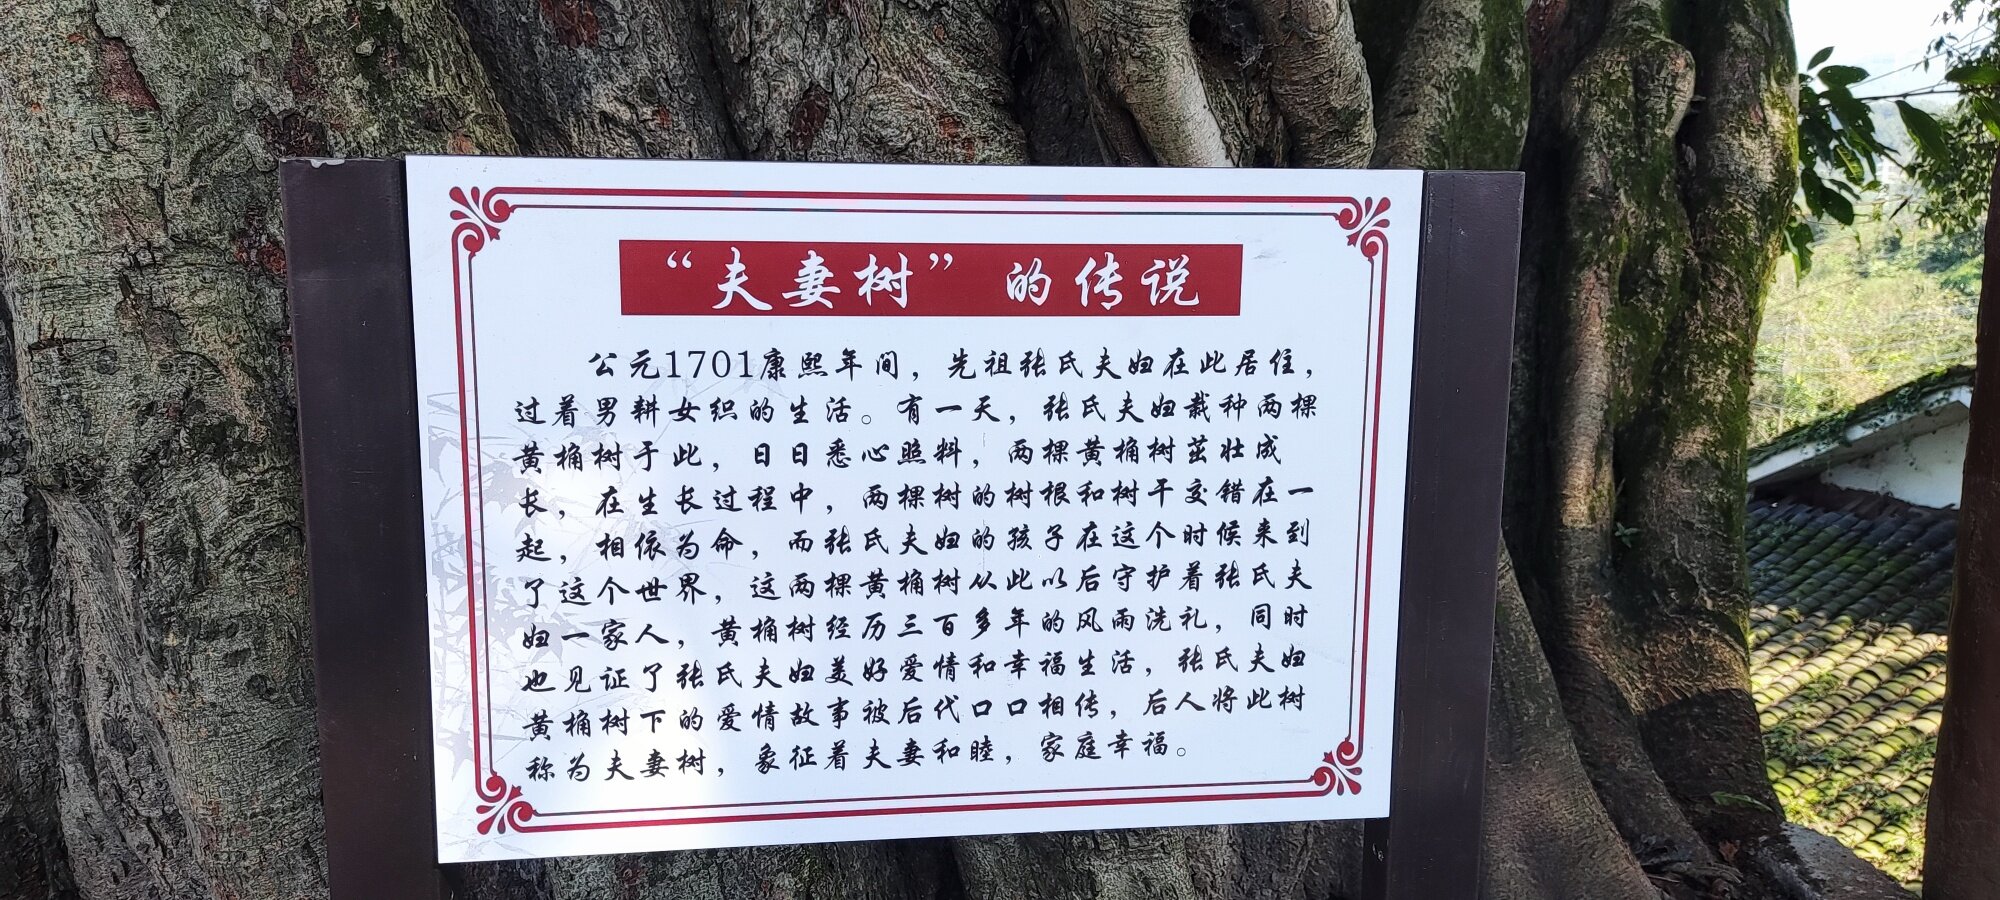 “夫妻树”的传说
公元1701康熙年间，先祖张氏夫妇在此居住，
过着男耕女织的生活。有一天，张氏夫妇栽种两棵
黄桷树于此，日日悉心照料，两棵黄桷树茁壮成
长，在生长过程中，两棵树的树根和树干交错在一
起，相依为命，而张氏夫妇的孩子在这个时候来到
了这个世界，这两棵黄桷树从此以后守护着张氏夫
妇一家人，黄桷树经历三百多年的风雨洗礼，同时
也见证了张氏夫妇美好爱情和幸福生活，张氏夫妇
黄桷树下的爱情故事被后代口口相传，后人将此树
称为夫妻树，象征着夫妻和睦，家庭幸福。